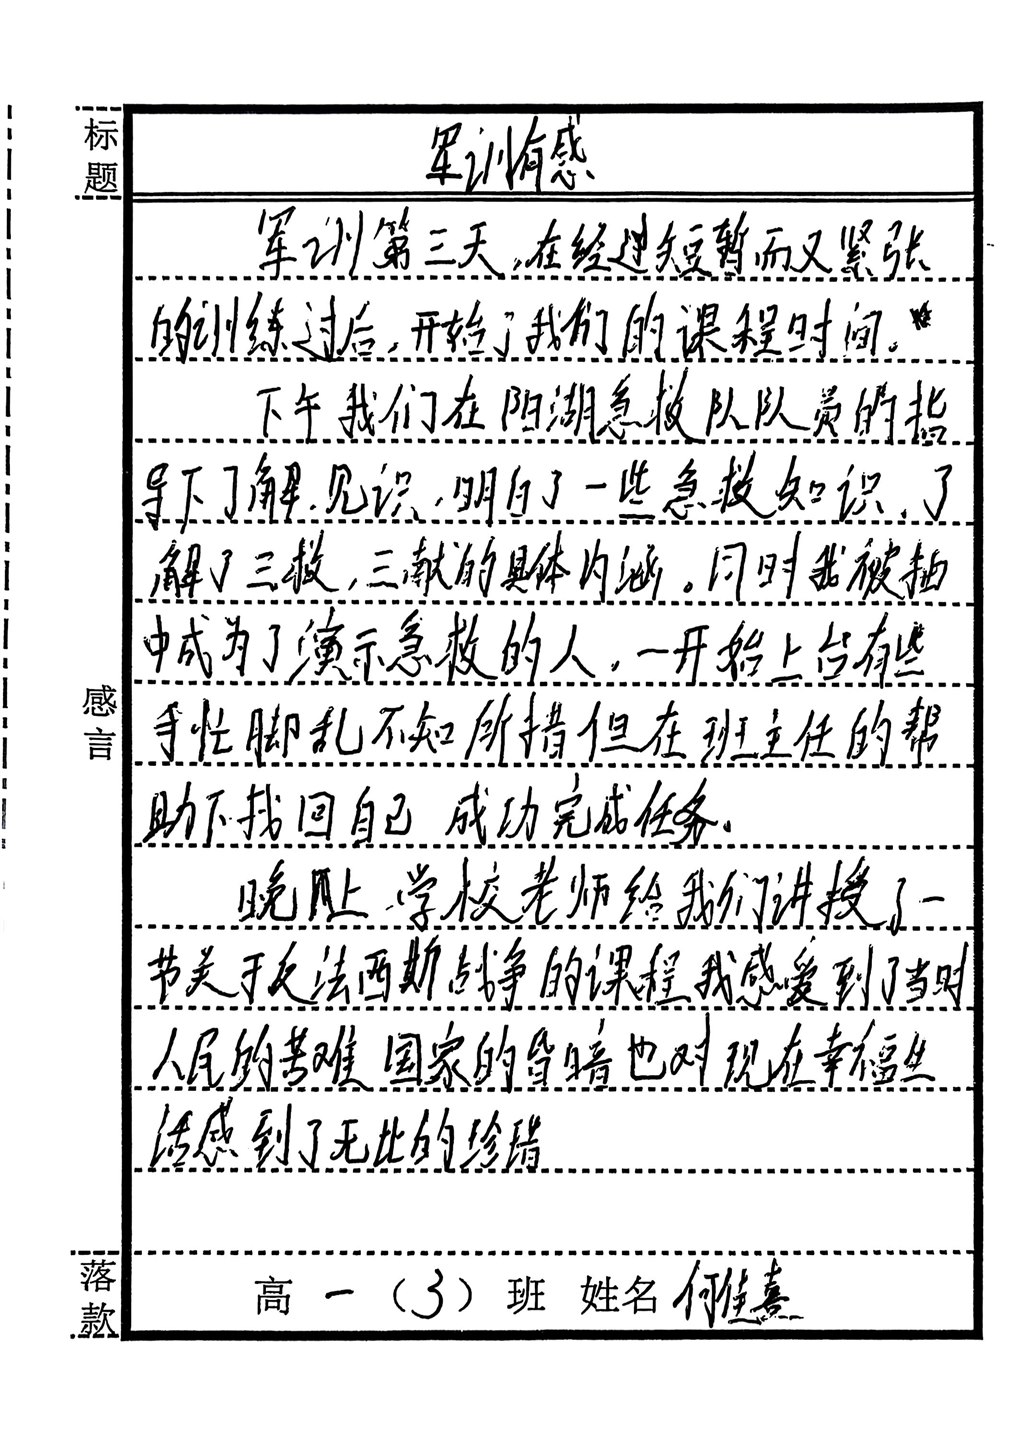 标题
军训有感
军训第三天,在经过短暂而又紧张
的训练过后,开始了我们的课程时间。
下午我们在阳湖急救队队员的指
导下了解.见识,明白了一些急救知识,了
解了三救,三献的具体内涵。同时我被抽
中成为了演示急救的人,一开始上台有些
手忙脚乱不知所措但在班主任的帮
助下找回自己 成功完成任务。
感言
晚上 学校老师给我们讲授了一
节关于反法西斯战争的课程我感爱到了当时
人民的苦难 国家的昏暗也对现在幸福生
活感到了无比的珍惜
落款
高一(3)班 姓名何佳熹